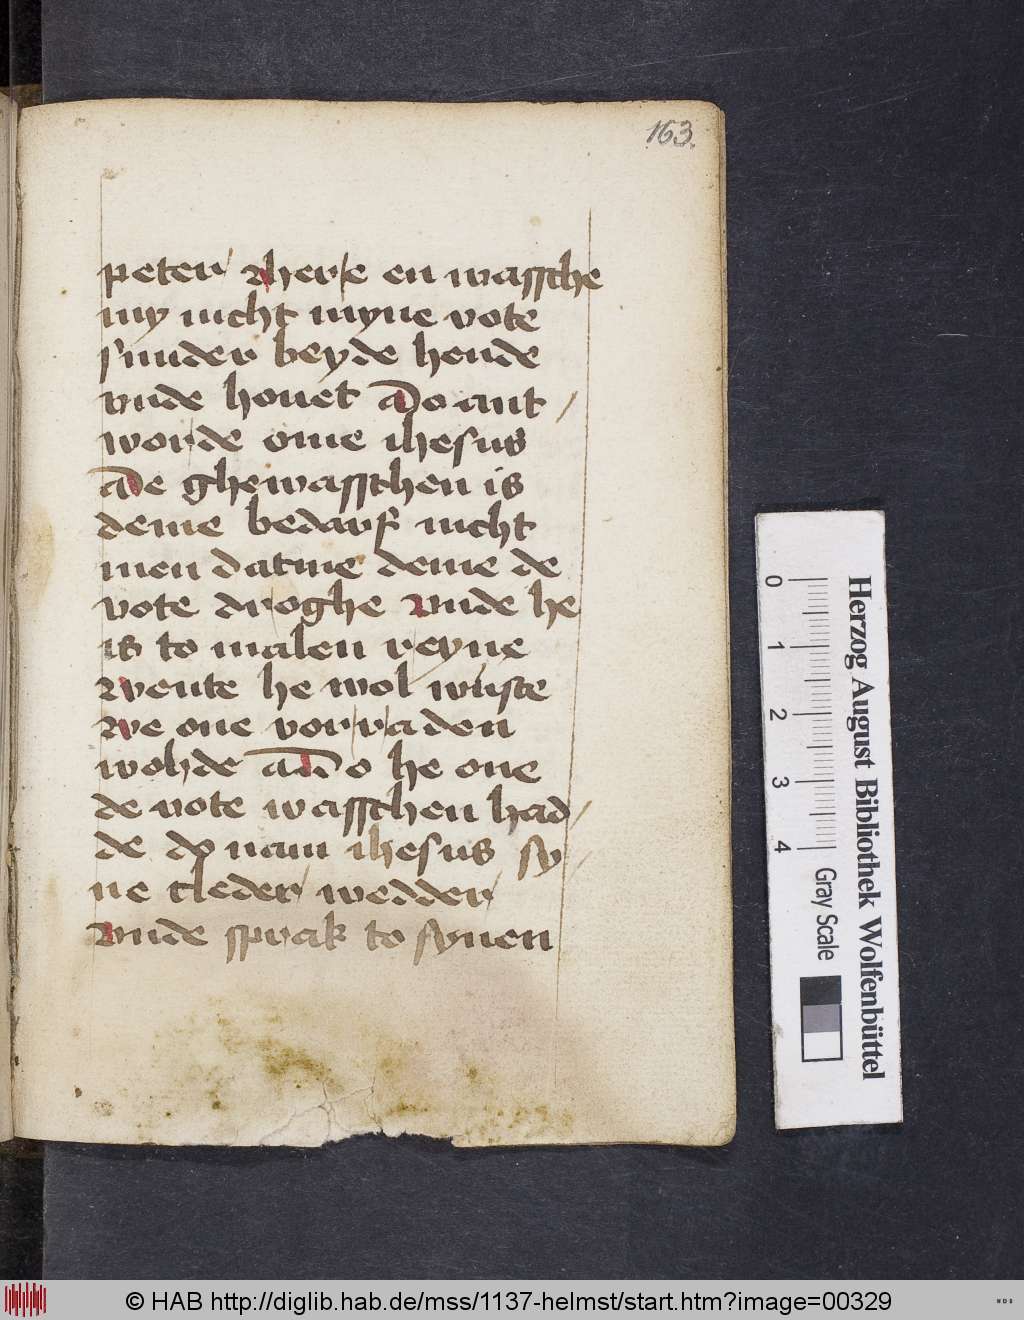 163.
peter here en wassche
my nicht myne vote
sunder beyde hende
vnde houet Do ant
worde ome ihesus
De ghewasschen is
deme bedarf nicht
men datme deme de
vote droghe vnde he
is to malen reyne
wente he wol wuste
we one vorraden
wolde Do he one
de vote wasschen had
de do nam ihesus sy
ne cleder wedder
vnde sprak to synen
Herzog August Bibliothek Wolfenbüttel
0 1 2 3 4
Gray Scale
© HAB http://diglib.hab.de/mss/1137-helmst/start.htm?image=00329